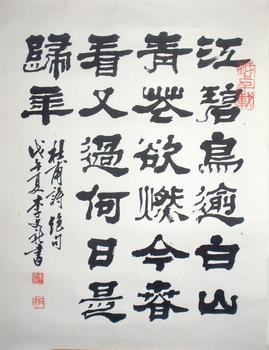 江碧鳥逾白山
青花欲燃今春
看又過何日是
歸年
杜甫詩絕句
戊午夏李書